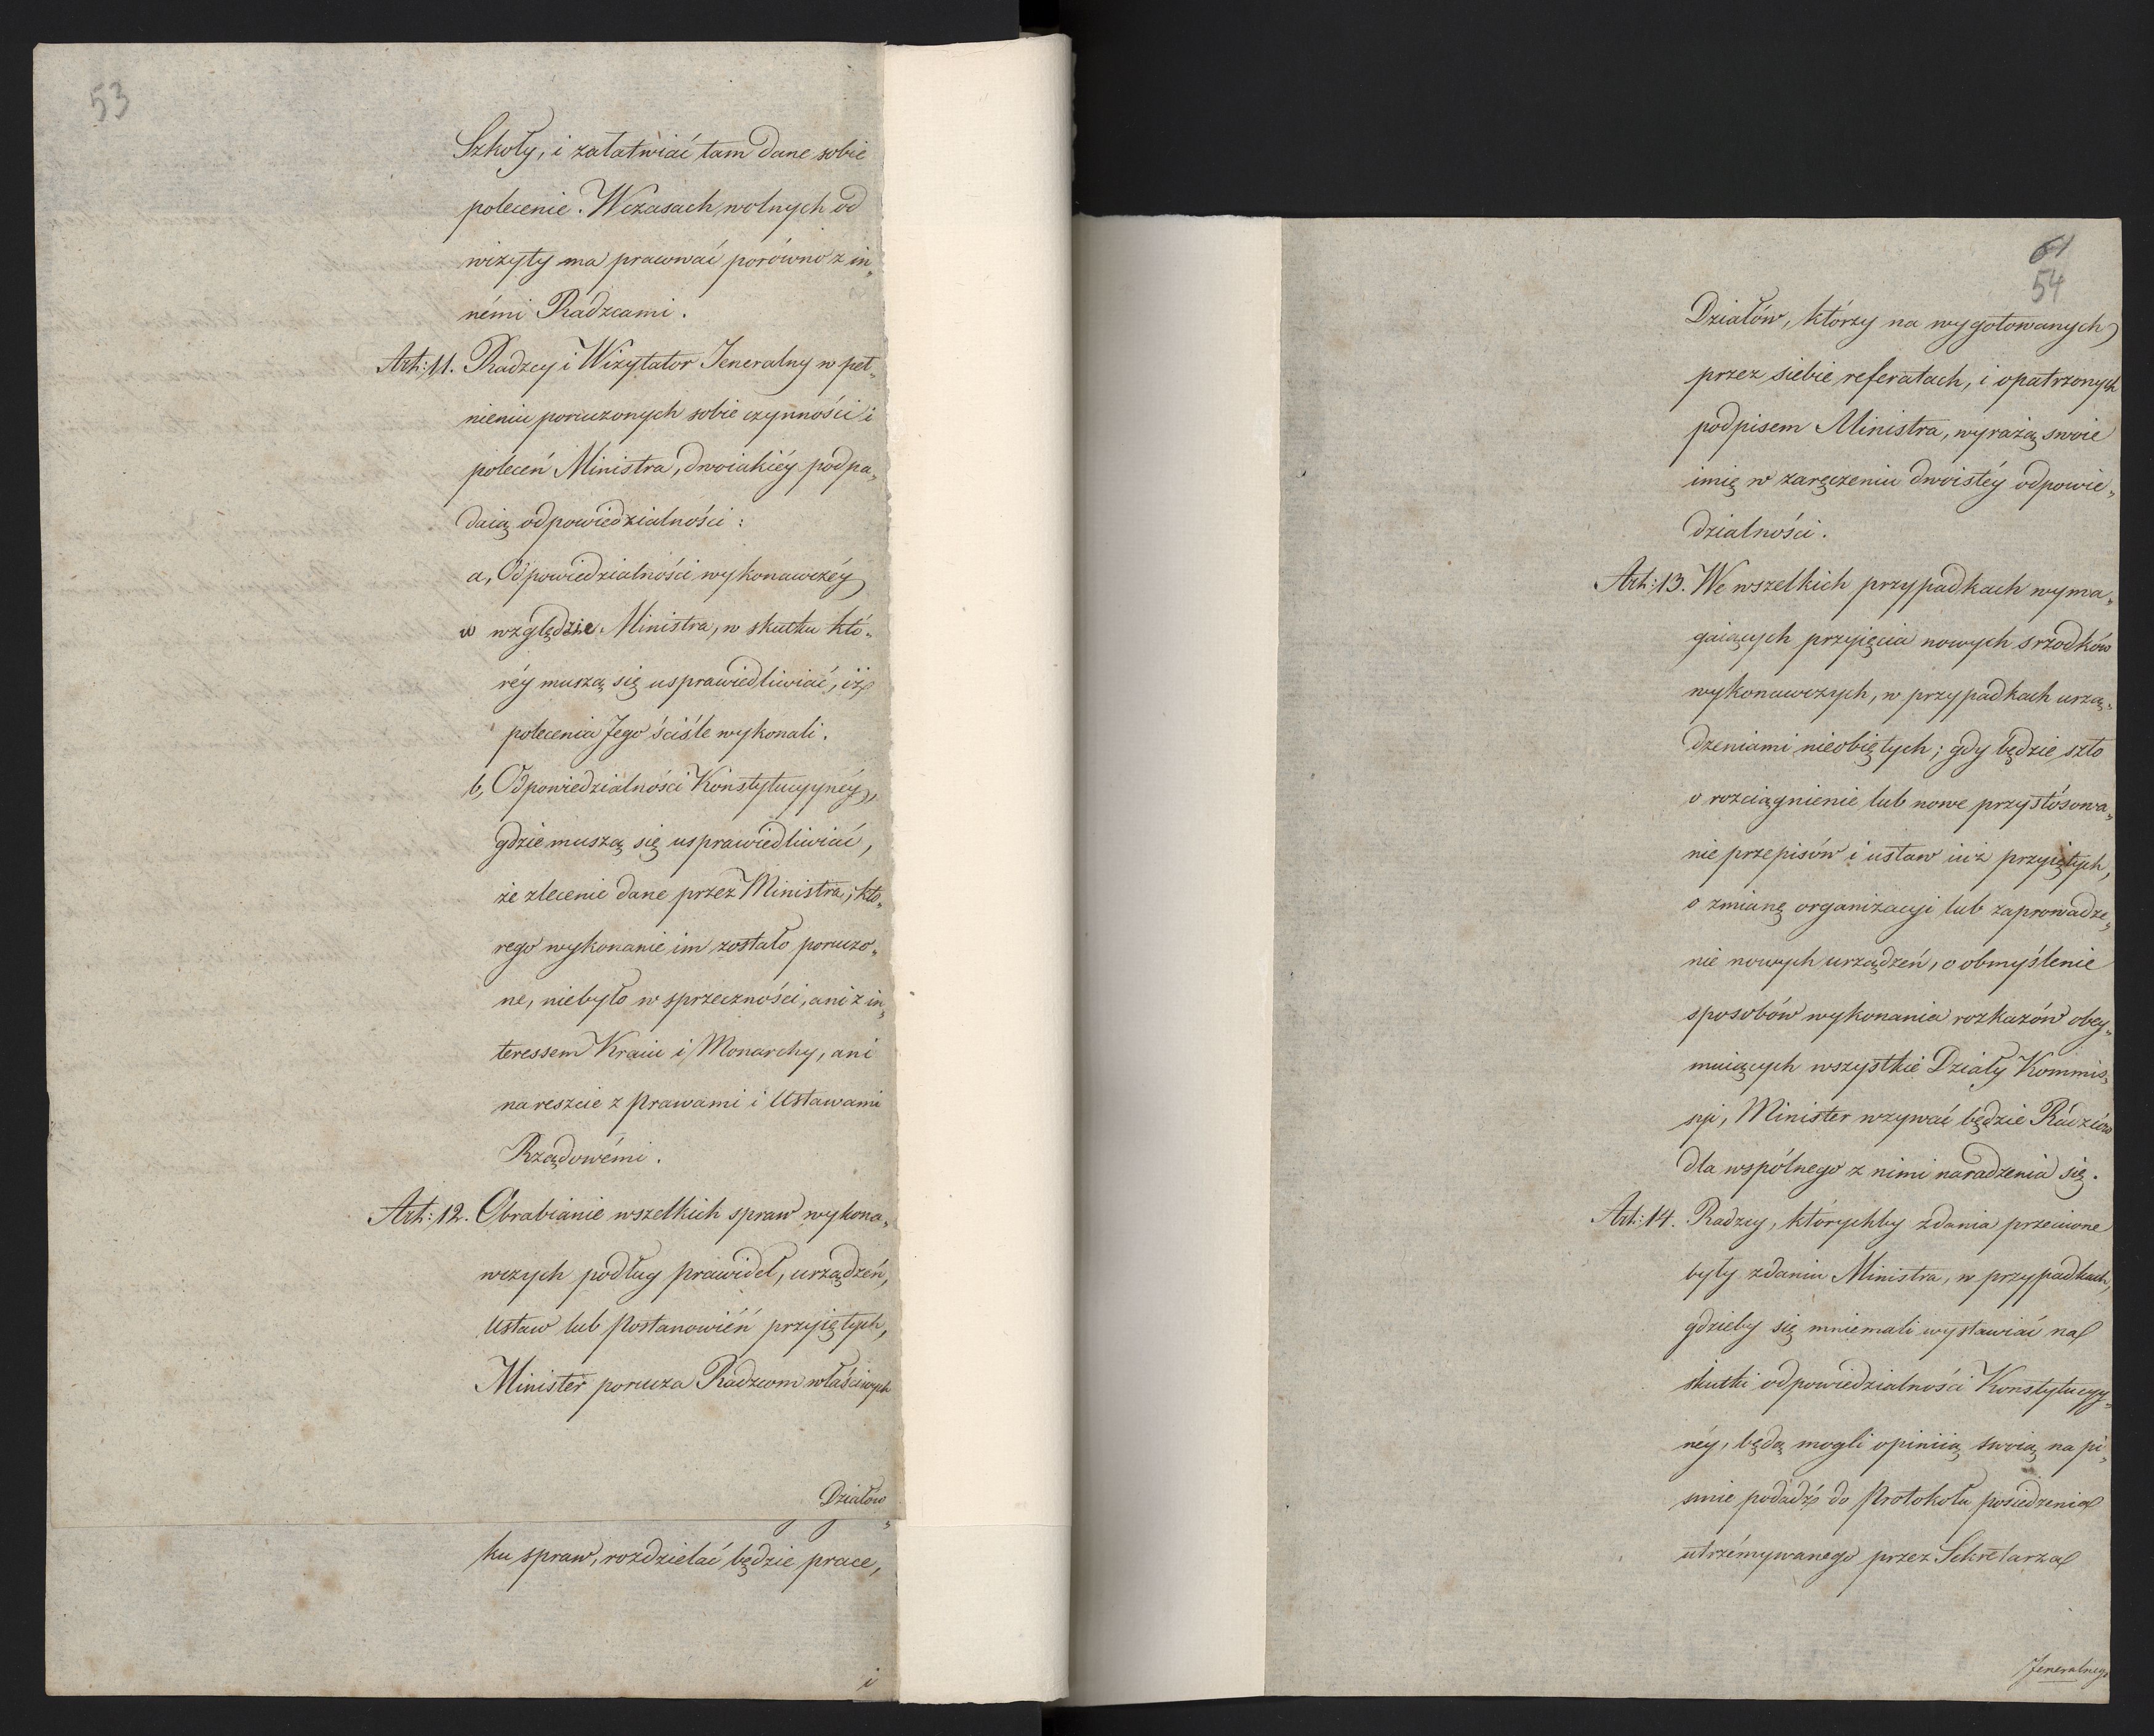 53
Szkoły, i załatwiać tam dane sobie
polecenie. W czasach wolnych od
wizyty ma pracować porówno z in„
némi Radzcami.
Art: 11. Radzcy i Wizytator Jeneralny w peł„
nieniu poruczonych sobie czynności i
poleceń Ministra, dwoiakiéy podpa„
daią odpowiedzialności:
a, Odpowiedzialności wykonawczéy
w względzie Ministra, w skutku któ„
réy muszą się usprawiedliwiać, iż
polecenia Jego ściśle wykonali.
b, Odpowiedzialności Konstytucyynéy,
gdzie muszą się usprawiedliwiać,
że zlecenie dane przez Ministra, któ„
rego wykonanie im zostało poruczo„
ne, niebyło w sprzeczności, ani z in„
teressem Kraiu i Monarchy, ani
nareszcie z Prawami i Ustawami
Rządowémi.
Art: 12. Obrabianie wszelkich spraw wykona„
wczych podług prawideł, urządzeń,
Ustaw lub Postanowień przyiętych,
Minister porucza Radzcom właściwych
Działów
ku spraw, rozdzielać będzie prace,
i
61
54
Działów, którzy na wygotowanych
przez siebie referatach, i opatrzonych
podpisem Ministra, wyrażą swoie
imię w zaręczeniu dwoistéy odpowie„
dzialności.
Art: 13. We wszelkich przypadkach wyma„
gaiących przyięcia nowych srzodków
wykonawczych, w przypadkach urzą„
dzeniami nieobiętych; gdy będzie szło
o rozciągnienie lub nowe przystósowa„
nie przepisów i ustaw iuż przyiętych,
o zmianę organizacyi lub zaprowadze„
nie nowych urządzeń, o obmyślenie
sposobów wykonania rozkazów obey„
muiących wszystkie Działy Kommis„
syi, Minister wzywać będzie Radzców
dla wspólnego z nimi naradzenia się.
Art: 14. Radzcy, którychby zdania przeciwne
były zdaniu Ministra, w przypadkach,
gdzieby się mniemali wystawiać na
skutki odpowiedzialności Konstytucyy„
néy, będą mogli opiniią swoią na pi„
śmie podadź do Protokołu posiedzenia
utrzémywanego przez Sekretarza
Jeneralnego